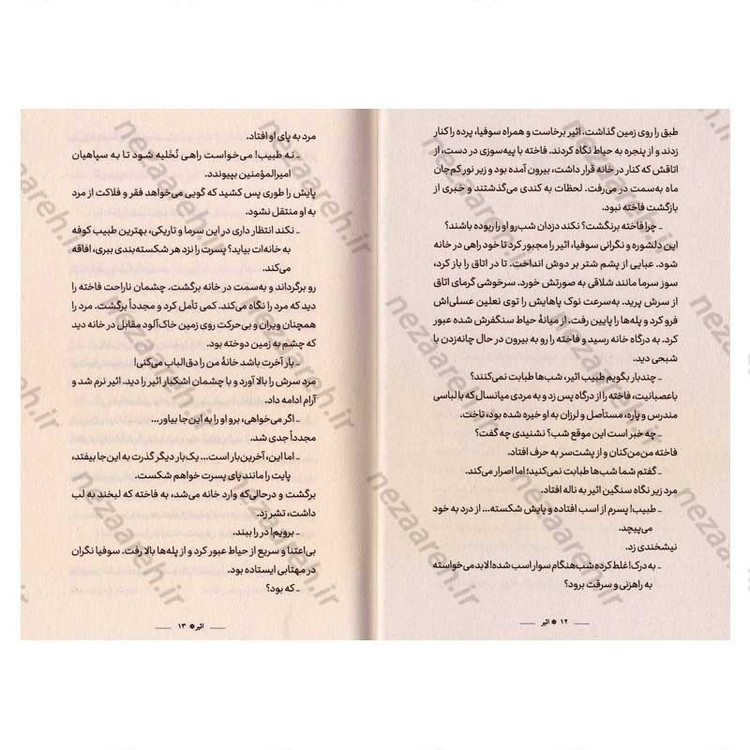 طبق را روی زمین گذاشت. اثیر برخاست و همراه سوفیا، پرده را کنار
زدند و از پنجره به حیاط نگاه کردند. فاخته با پیه‌سوزی در دست، از
اتاقش که کنار در خانه قرار داشت، بیرون آمده بود و زیر نور کم‌جان
ماه به‌سمت در می‌رفت. لحظات به کندی می‌گذشتند و خبری از
بازگشت فاخته نبود.
ـ چرا فاخته برنگشت؟ نکند دزدان شب‌رو او را ربوده باشند؟
این دلشوره و نگرانی سوفیا، اثیر را مجبور کرد تا خود راهی در خانه
شود. عبایی از پشم شتر بر دوش انداخت. تا در اتاق را باز کرد،
سوز سرما مانند شلاقی به صورتش خورد. سرخوشی گرمای اتاق
از سرش پرید. به‌سرعت نوک پاهایش را توی نعلین عسلی‌اش
فرو کرد و پله‌ها را پایین رفت. از میانهٔ حیاط سنگفرش شده عبور
کرد. به درگاه خانه رسید و فاخته را رو به بیرون در حال چانه‌زدن با
شبحی دید.
ـ چندبار بگویم طبیب اثیر، شب‌ها طبابت نمی‌کنند؟
باعصبانیت، فاخته را از درگاه پس زد و به مردی میانسال که با لباسی
مندرس و پاره، مستأصل و لرزان به او خیره شده بود، تاخت.
ـ چه خبر است این موقع شب؟ نشنیدی چه گفت؟
فاخته من‌من‌کنان و از پشت‌سر به حرف افتاد.
ـ گفتم شما شب‌ها طبابت نمی‌کنید؛ اما اصرار می‌کند.
مرد زیر نگاه سنگین اثیر به ناله افتاد.
ـ طبیب! پسرم از اسب افتاده و پایش شکسته... از درد به خود
می‌پیچد.
نیشخندی زد.
ـ به درک! غلط کرده شب‌هنگام سوار اسب شده! لابد می‌خواسته
به راهزنی و سرقت برود؟
۱۲ * اثیر
مرد به پای او افتاد.
ـ نه طبیب! می‌خواست راهی نُخَلیه شود تا به سپاهیان
امیرالمؤمنین بپیوندد.
پایش را طوری پس کشید که گویی می‌خواهد فقر و فلاکت از مرد
به او منتقل نشود.
ـ نکند انتظار داری در این سرما و تاریکی، بهترین طبیب کوفه
به خانه‌ات بیاید؟ پسرت را نزد هر شکسته‌بندی ببری، افاقه
می‌کند.
رو برگرداند و به‌سمت در خانه برگشت. چشمان ناراحت فاخته را
دید که مرد را نگاه می‌کند. کمی تأمل کرد و مجدداً برگشت. مرد را
همچنان ویران و بی‌حرکت روی زمین خاک‌آلود مقابل در خانه دید
که چشم به زمین دوخته بود.
ـ بار آخرت باشد خانهٔ من را دق‌الباب می‌کنی!
مرد سرش را بالا آورد و با چشمان اشکبار اثیر را دید. اثیر نرم شد و
آرام ادامه داد.
ـ اگر می‌خواهی، برو او را به این‌جا بیاور...
مجدداً جدی شد.
ـ اما این، آخرین‌بار است... یک‌بار دیگر گذرت به این‌جا بیفتد،
پایت را مانند پای پسرت خواهم شکست.
برگشت و درحالی‌که وارد خانه می‌شد، به فاخته که لبخند به لب
داشت، تشر زد.
ـ برویم! در را ببند.
بی‌اعتنا و سریع از حیاط عبور کرد و از پله‌ها بالا رفت. سوفیا نگران
در مهتابی ایستاده بود.
ـ که بود؟
اثیر * ۱۳
nezaareh.ir
nezaareh.ir
nezaareh.ir
nezaareh.ir
nezaareh.ir
nezaareh.ir